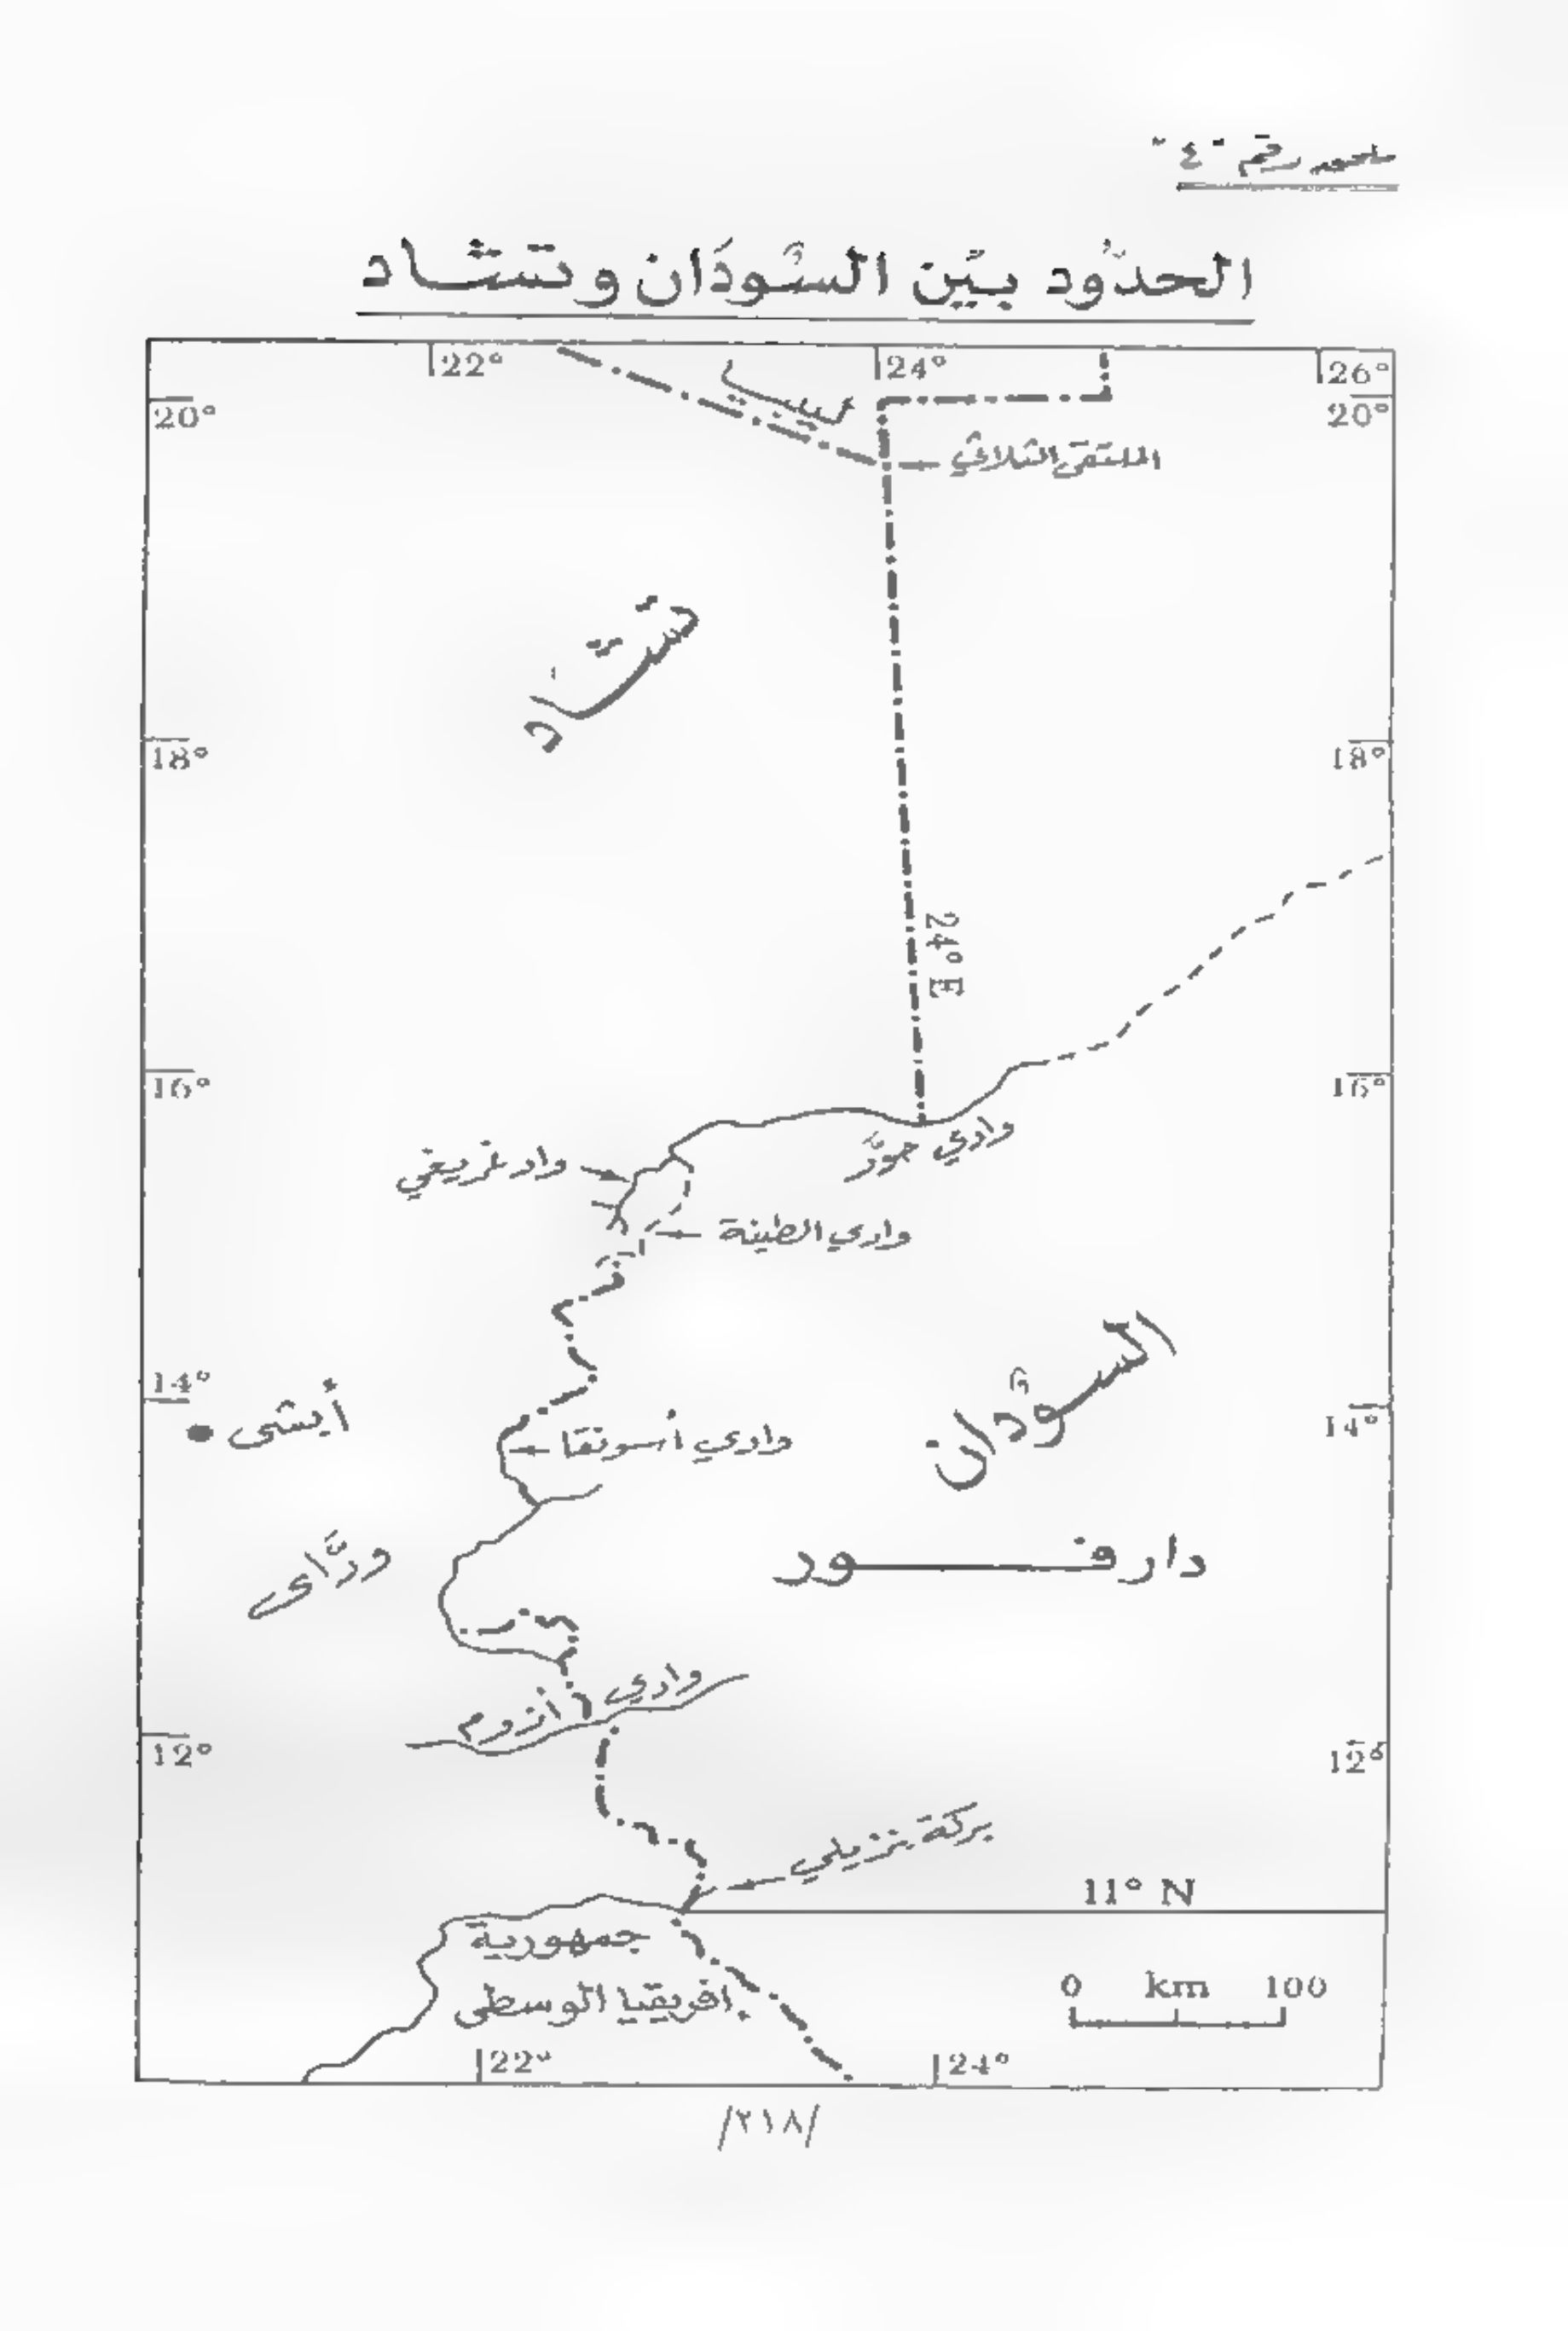 ملحق رقم "٤"
الحدُود بيَن السُودَان وتشاد
22°
24°
26°
20°
20°
ليبيا
الملتقى الثلاثي
تشاد
18°
18°
24° E
16°
16°
وادي حوَّر
وادي الطينة
السودان
14°
14°
أبشى
دارفور
ودَّاى
وادي أزوم
12°
12°
11° N
جمهورية
إفريقيا الوسطى
0 km 100
22°
24°
/٢١٨/